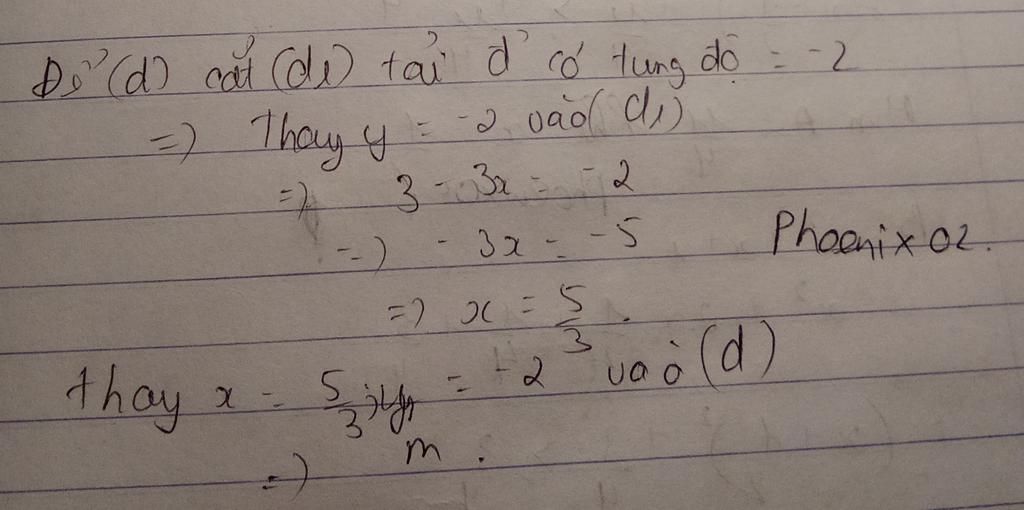 Để (d) cắt (d1) tại đ' có tung độ = -2
=) Thay y = -2 vào (d1)
=) 3 - 3x = -2
=) - 3x = -5
Phoenix 02.
=) x = 5/3.
thay x = 5/3; y = -2 vào (d)
=) m.